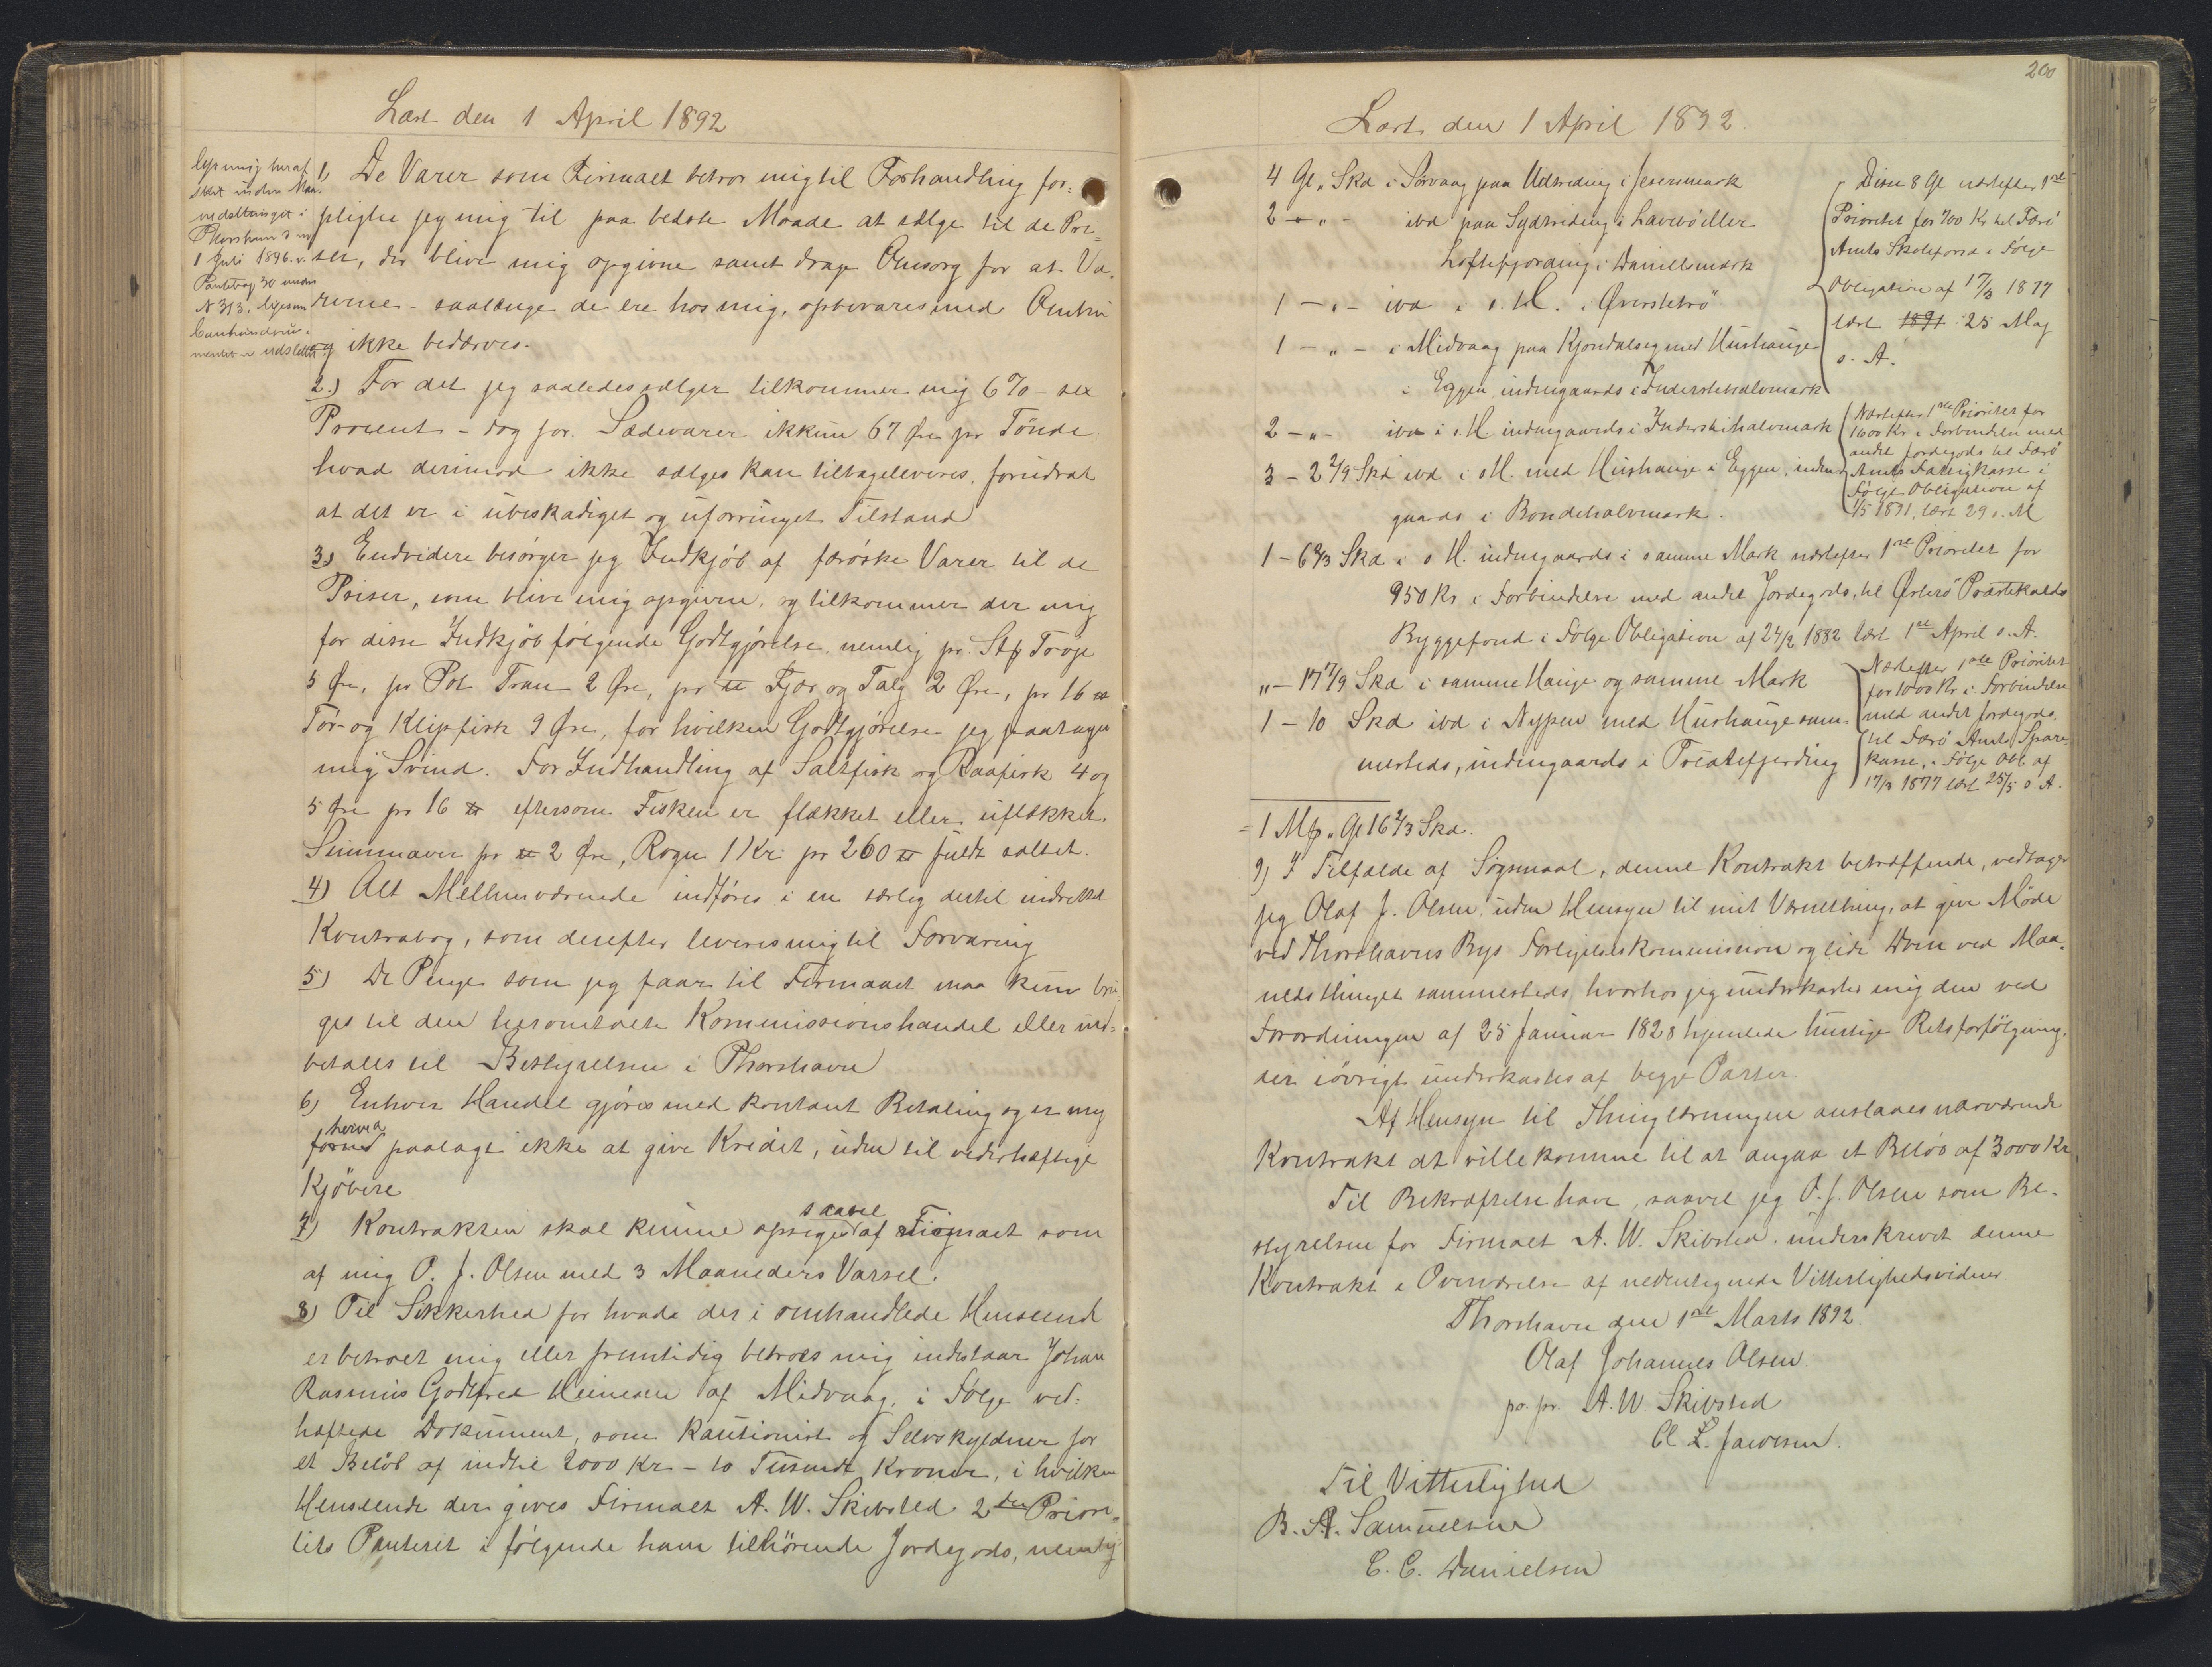 Læst den 1 April 1892
skeet inden Maa-
nedsthinget i
Thorshavn d
1 Juli 1896. v.
Pantebog 30 under
N 313. ligesom
Cautionsdocu-
mentet er udslettet
1, De Varer som Firmaet betror mig til Forhandling for-
pligter jeg mig til paa bedste Maade at sælge til de Pri-
ser, der blive mig opgivne samt drage Omsorg for at Va-
rerne - saalænge de ere hos mig, opbevares med Omhu
og ikke bedærves.
2.) For det jeg saaledes sælger tilkommer mig 6% - sex
Procent - dog for Sædevarer ikkun 67 Øre pr Tönde
hvad derimod ikke sælges kan tilbageleveres, forudsat
at det er i ubeskadiget og uforringet Tilstand
3) Endvidere besörger jeg Indkjöb af færöske Varer til de
Priser, som blive mig opgivne, og tilkommer der mig
for disse Indkjöb fölgende Godtgjörelse, nemlig pr. Stk Tröje
5 Øre, pr Pot Tran 2 Øre, pr ℔ Fjær og Talg 2 Øre, pr 16 ℔
Tör- og Klipfisk 9 Øre, for hvilken Godtgjörelse jeg paatager
mig Svind. For Indhandling af Saltfisk og Raafisk 4 og
5 Øre pr 16 ℔ eftersom Fisken er flækket eller uflækket.
Sundmaver pr ℔ 2 Øre, Rogn 1 Kr. pr 260 ℔ fuldt saltet.
4) Alt Mellemværende indföres i en særlig dertil indrettet
Kontrabog, som derefter leveres mig til Forvaring
5) De Penge som jeg faar til Firmaet maa kun bru-
ges til den heromtalte Kommissionshandel eller ind-
betales til Bestyrelsen i Thorshavn
6) Enhver Handel gjöres med kontant Betaling og er mig
herved
forud paalagt ikke at give Kredit, uden til vederhæftige
Kjöbere
saavel
7) Kontrakten skal kunne opsiges af Firmaet som
af mig O. J. Olsen med 3 Maaneders Varsel.
8) Til Sikkerhed for hvad der i omhandlede Henseende
er betroet mig eller fremtidig betroes mig indestaar Johan
Rasmus Godtfred Heinesen af Midvaag, i Fölge ved-
hæftede Dokument, som Kautionist og Selvskyldner for
et Belöb af indtil 2000 Kr - to Tusinde Kroner, i hvilken
Henseende der gives Firmaet A. W. Skibsted 2den Priori-
tets Panteret i fölgende ham tilhörende Jordegods, nemlig
200
Læst den 1 April 1892.
4 Gl „ Skd i Sörvaag paa Udtriding i Jesersmark
2 - „ - ibd paa Sydtriding i Lavebö eller
Loftsfjording i Danielsmark
1 - „ - ibd i s. H. i Øverstetrö
1 - „ - i Midvaag paa Kjondalseg med Hushauge
i Eggen indengaards i Inderstehalvmark
Disse 8 Gl næstefter 1ste
Prioritet for 700 Kr til Færö
Amts Skolefond i Fölge
Obligation af 17/3 1877
læst 1891 25 Maj
s. A.
2 - „ - ibd i s. H indengaards i Inderstehalvmark
3 - 2 2/9 Skd ibd i s H. med Hushauge i Eggen, inden-
gaards i Bondehalvmark.
Næstefter 1ste Prioritet for
1600 Kr i Forbindelse med
andet Jordegods til Færö
Amts Fattigkasse i
Fölge Obligation af
1/5 1891, læst 29 s. M
1 - 6 2/3 Skd i s H. indengaards i samme Mark næstefter 1ste Prioritet for
950 Kr i Forbindelse med andet Jordegods, til Østerö Præstekalds
Byggefond i Fölge Obligation af 24/2 1882 læst 1ste April s. A.
„ - 17 7/9 Skd i samme Hauge og samme Mark
1 - 10 Skd ibd i Nypen med Hushauge sam-
mesteds, indengaards i Priatefjerding
Næstefter 1ste Prioritet
for 1000 Kr i Forbindelse
med andet Jordegods,
til Færö Amts Spare-
kasse, i Fölge Obl. af
17/3 1877 læst 25/5 s. A.
= 1 Mk „ Gl 16 2/3 Skd.
9) I Tilfælde af Sögsmaal, denne Kontrakt betræffende, vedtager
jeg Olaf J. Olsen, uden Hensyn til mit Værnething, at give Möde
ved Thorshavns Bys Forligelseskommission og lide Dom ved Maa-
nedsthinget sammesteds, hvorhos jeg underkaster mig den ved
Forordningen af 25 Januar 1828 hjemlede hurtige Retsforfölgning,
der iövrigt underkastes af begge Parter.
Af Hensyn til Thinglæsningen anslaaes nærværende
Kontrakt at ville komme til at angaa et Belöb af 3000 Kr
Til Bekræftelse have, saavel jeg O. J. Olsen som Be-
styrelsen for Firmaet A. W. Skibsted underskrevet denne
Kontrakt i Overværelse af nedentegnede Vitterlighedsvidner
Thorshavn den 1ste Marts 1892.
Olaf Johannes Olsen.
pr. pr. A. W. Skibsted
Cl L. Jacobsen.
Til Vitterlighed
B. A. Samuelsen
C. C. Danielsen